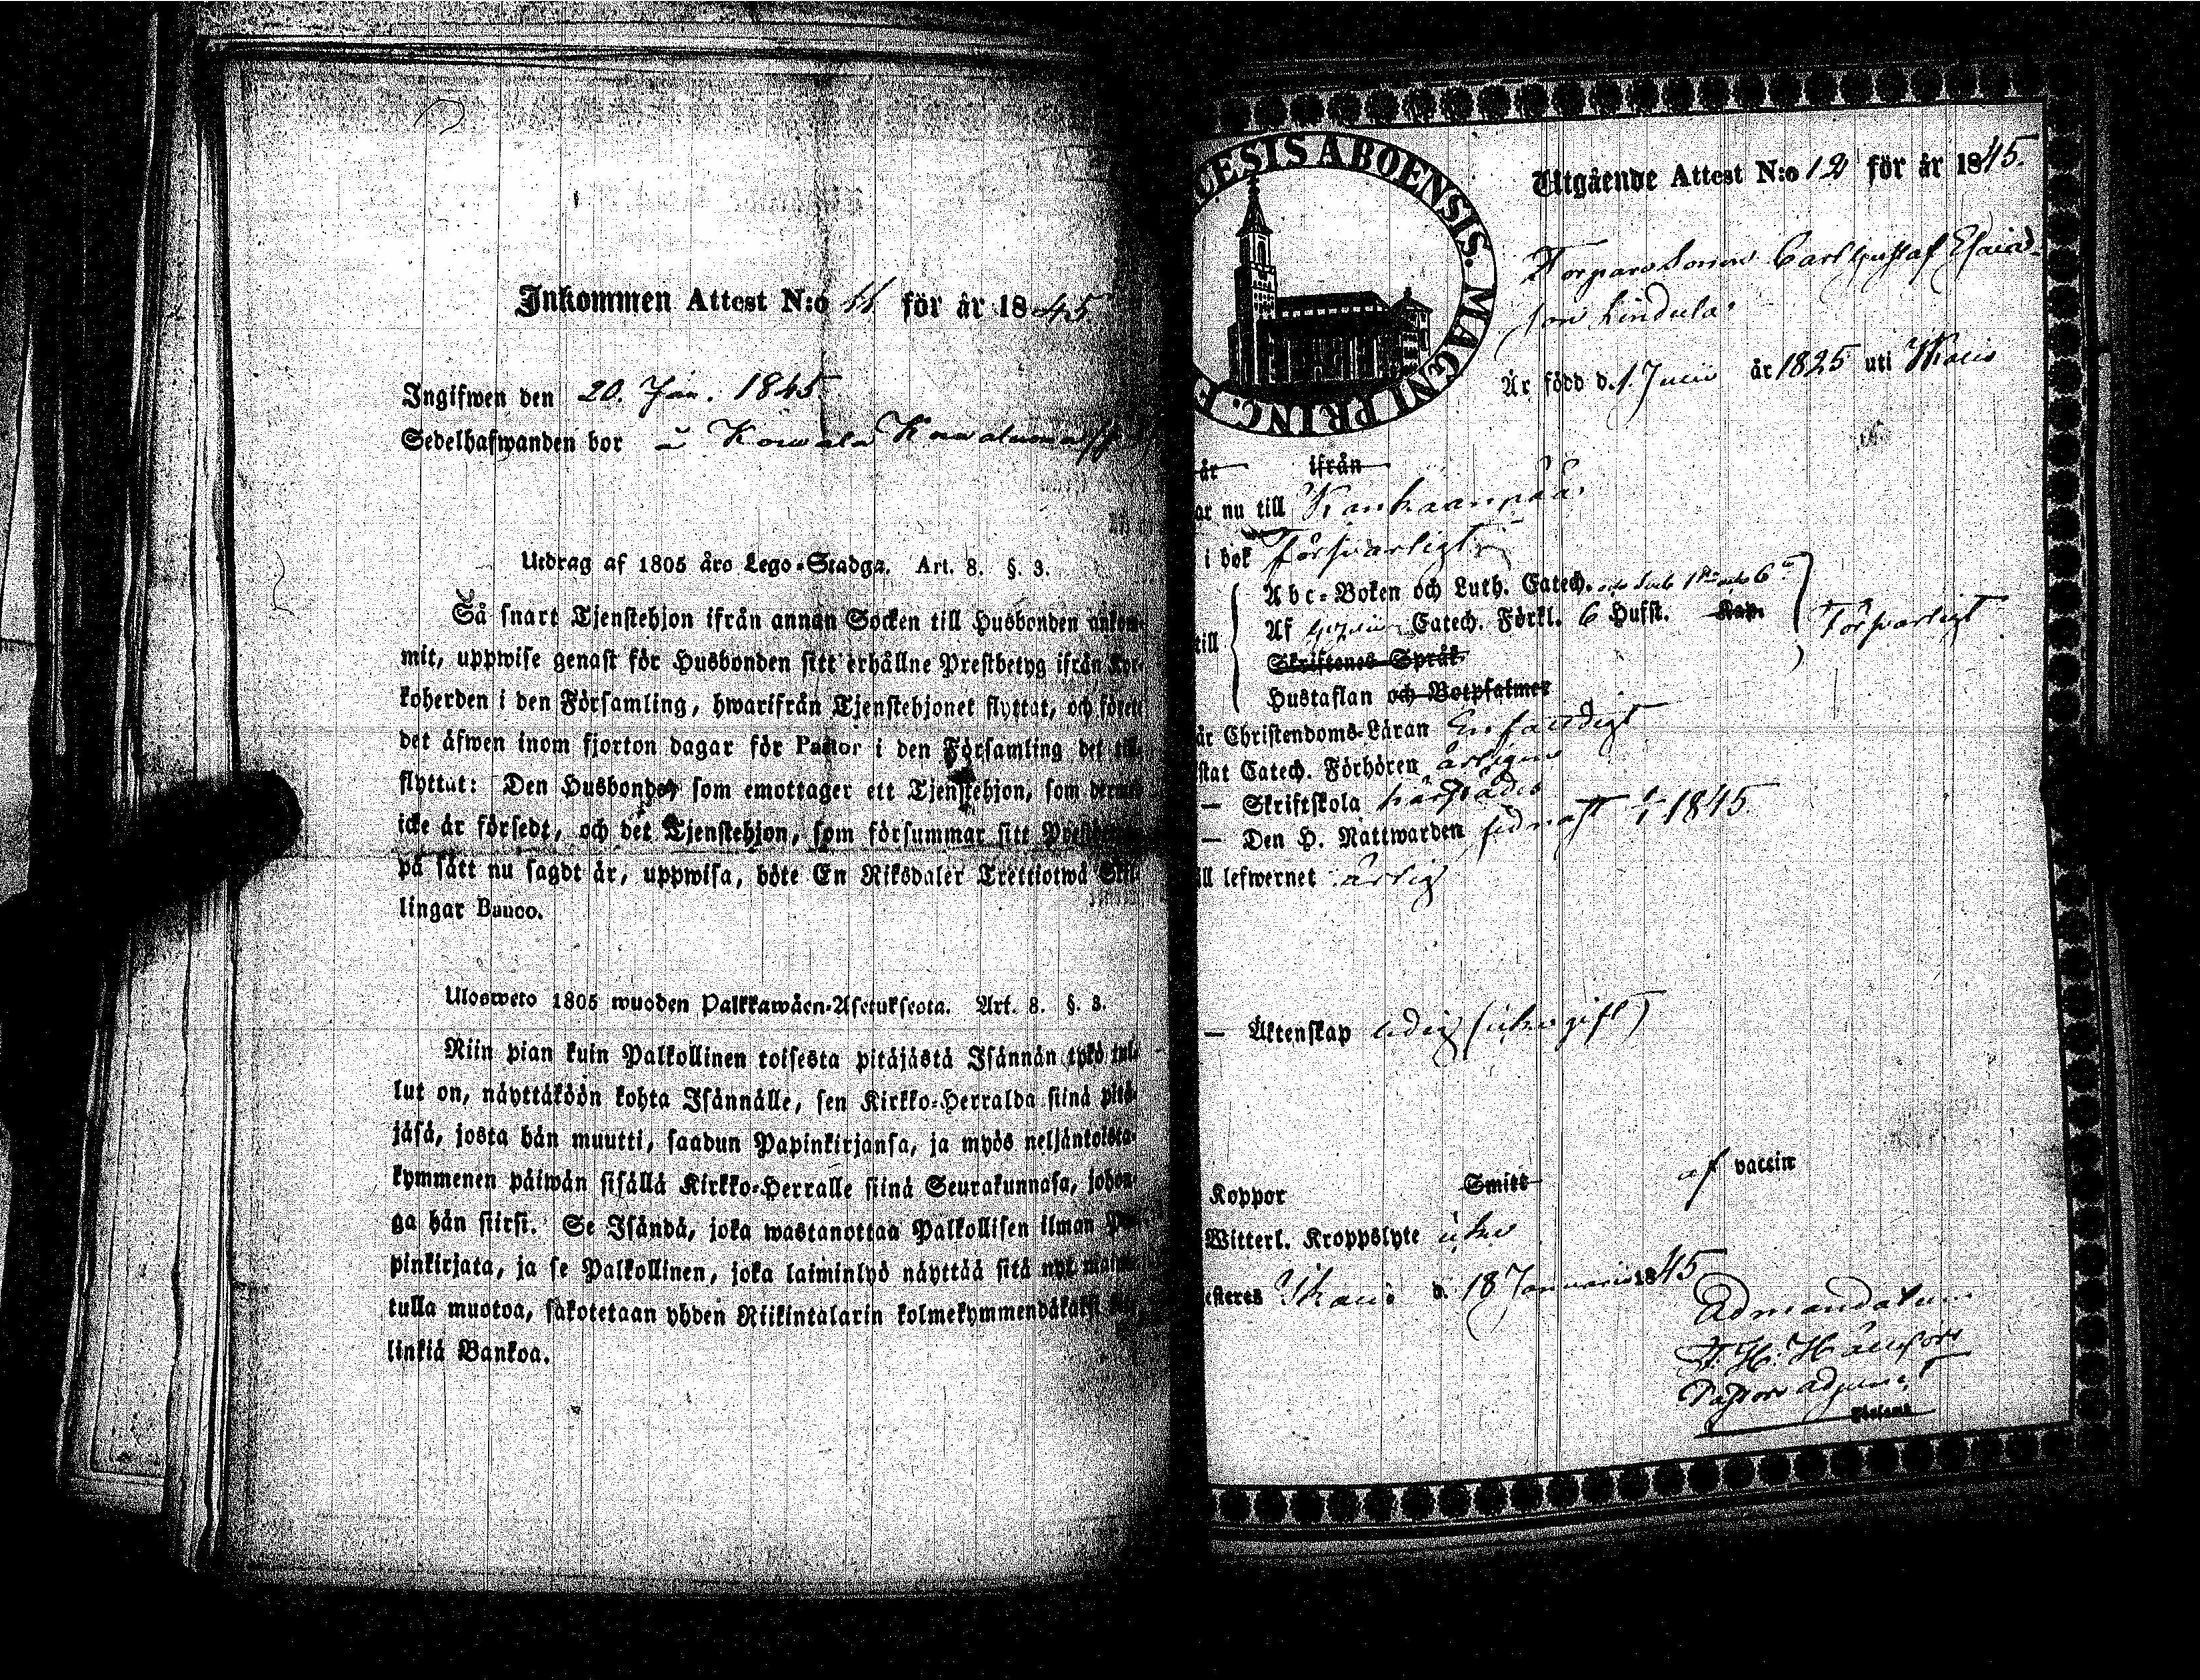 Inkommen Attest N:o 11 för år 1845.
Ingifwen den 20. Jan. 1845.
Sedelhafwanden bor å
Utdrag af 1805 års Lego-Stadga. Art. 8. §. 3.
Så snart Tjenstehjon ifrån annan Socken till Husbonden ankom-
mit, uppwise genast för Husbonden sitt erhållne Prestbetyg ifrån Kyr-
koherden i den Församling, hwarifrån Tjenstehjonet flyttat, och förete
det äfwen inom fjorton dagar för Pastor i den Församling det till-
flyttat: Den Husbonde, som emottager ett Tjenstehjon, som dermed
icke är försedt, och det Tjenstehjon, som försummar sitt
på sätt nu sagdt är, uppwisa, böte En Riksdaler Trettiotwå Skil-
lingar Banco.
Ulosweto 1805 wuoden Palkkawäen-Asetuksesta. Art. 8. §. 3.
Niin pian kuin Palkollinen toisesta pitäjästä Isännän tykö tul-
lut on, näyttäköön kohta Isännälle, sen Kirkko-Herralda siinä pitä-
jäsä, josta hän muutti, saadun Papinkirjansa, ja myös neljäntoista-
kymmenen päiwän sisällä Kirkko-Herralle siinä Seurakunnasa, johon-
ga hän siirsi. Se Isändä, joka wastanottaa Palkollisen ilman Pa-
pinkirjata, ja se Palkollinen, joka laiminlyö näyttää sitä nyt mainit-
tulla muotoa, sakotetaan yhden Riikintalarin kolmekymmendäkaksi kil-
linkiä Bankoa.
CESIS ABOENSIS. MAGNI PRINC. F
Utgående Attest N:o 12 för år 1845.
Torpare Sonen Carl Gustaf Esaias-
son Lindula
Är född d. 1. Junii år 1825 uti Ikalis
är ifrån
ar nu till Kankaanpää
i bok försvarligt
till
Abc-Boken och Luth. Catech.
Af Catech. Förkl. 6 Hufst. Kap.
Försvarligt
Skriftenes Språk
Hustaflan och Botpsalmer
är Christendoms-Läran Enfaldigt
stat Catech. Förhören årligen
— Skriftskola härstädes
— Den H. Nattwarden sednast 1845
ll lefwernet ärlig
— Äktenskap ledig (icke gift)
Koppor Smitt af vaccin
Witterl. Kroppslyte icke
esteres Ikalis d. 18 Januarii 1845
Ad mandatum
Pastors adjunct